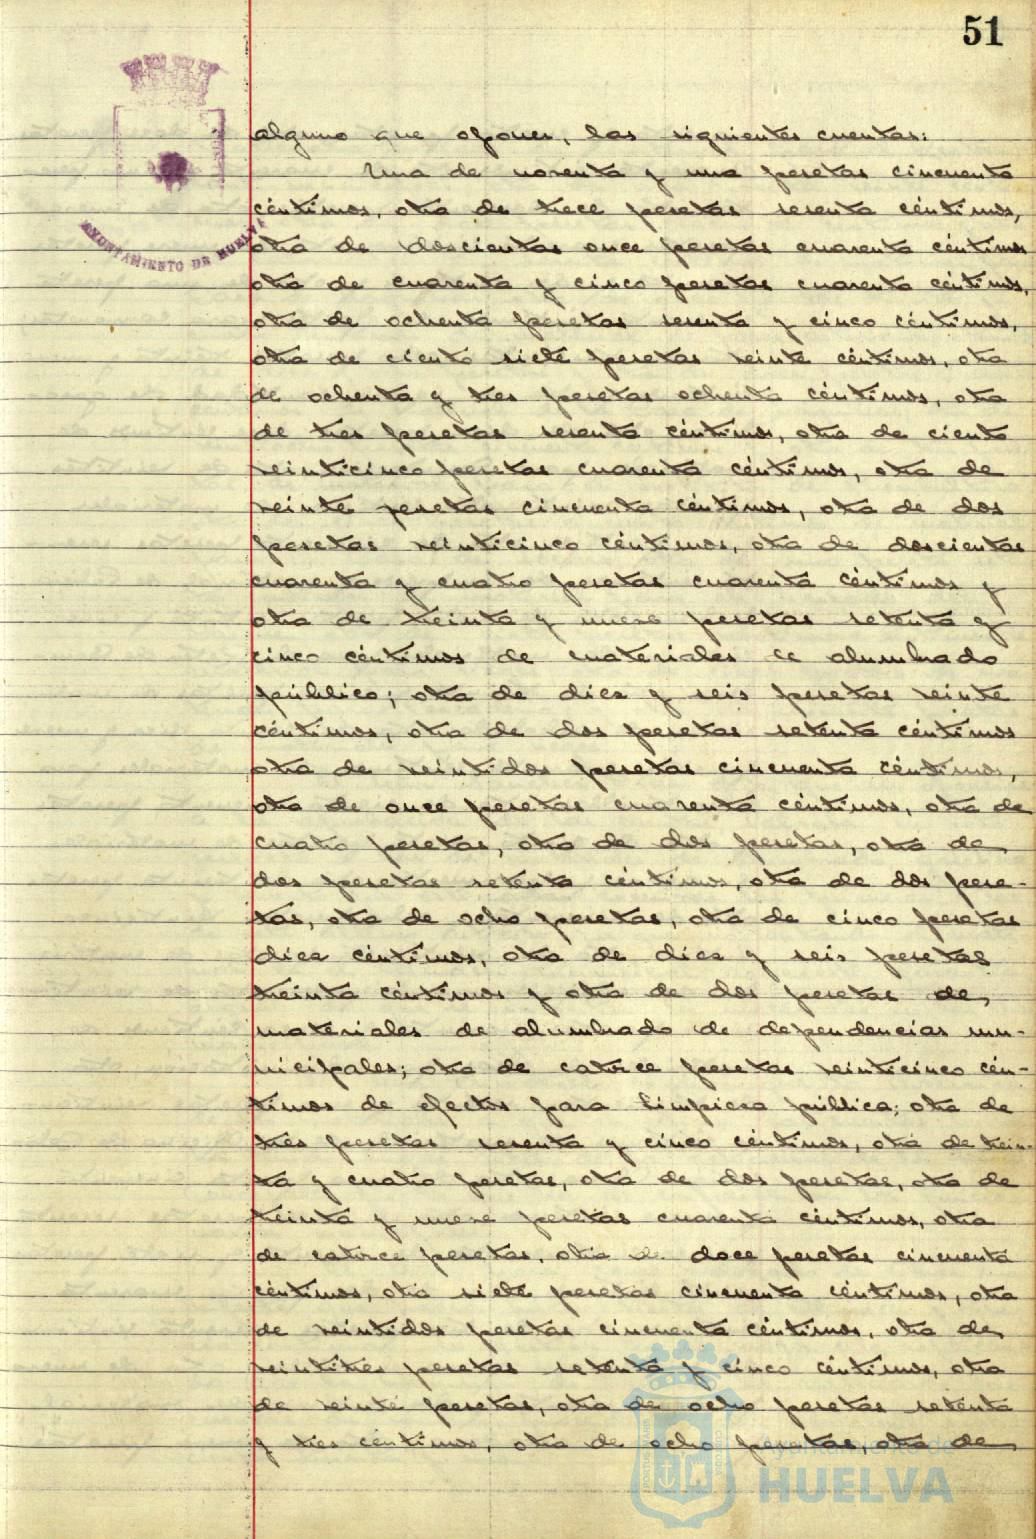 51
AYUNTAMIENTO DE HUELVA
alguno que oponer, las siguientes cuentas:
Una de noventa y una pesetas cincuenta
céntimos, otra de trece pesetas sesenta céntimos,
otra de doscientas once pesetas cuarenta céntimos
otra de cuarenta y cinco pesetas cuarenta céntimos,
otra de ochenta pesetas sesenta y cinco céntimos,
otra de ciento siete pesetas veinte céntimos, otra
de ochenta y tres pesetas ochenta céntimos, otra
de tres pesetas sesenta céntimos, otra de ciento
veinticinco pesetas cuarenta céntimos, otra de
veinte pesetas cincuenta céntimos, otra de dos
pesetas veinticinco céntimos, otra de doscientas
cuarenta y cuatro pesetas cuarenta céntimos y
otra de treinta y nueve pesetas setenta y
cinco céntimos de materiales de alumbrado
público; otra de diez y seis pesetas veinte
céntimos, otra de dos pesetas setenta céntimos
otra de veintidos pesetas cincuenta céntimos,
otra de once pesetas cuarenta céntimos, otra de
cuatro pesetas, otra de dos pesetas, otra de
dos pesetas setenta céntimos, otra de dos pese-
tas, otra de ocho pesetas, otra de cinco pesetas
diez céntimos, otra de diez y seis pesetas
treinta céntimos y otra de dos pesetas de
materiales de alumbrado de dependencias mu-
nicipales; otra de catorce pesetas veinticinco cén-
timos de efectos para limpieza pública; otra de
tres pesetas sesenta y cinco céntimos, otra de trein-
ta y cuatro pesetas, otra de dos pesetas, otra de
treinta y nueve pesetas cuarenta céntimos, otra
de catorce pesetas, otra de doce pesetas cincuenta
céntimos, otra siete pesetas cincuenta céntimos, otra
de veintidos pesetas cincuenta céntimos, otra de
veintitres pesetas setenta y cinco céntimos, otra
de veinte pesetas, otra de ocho pesetas setenta
y tres céntimos, otra de ocho pesetas, otra de
Ayuntamiento de
HUELVA